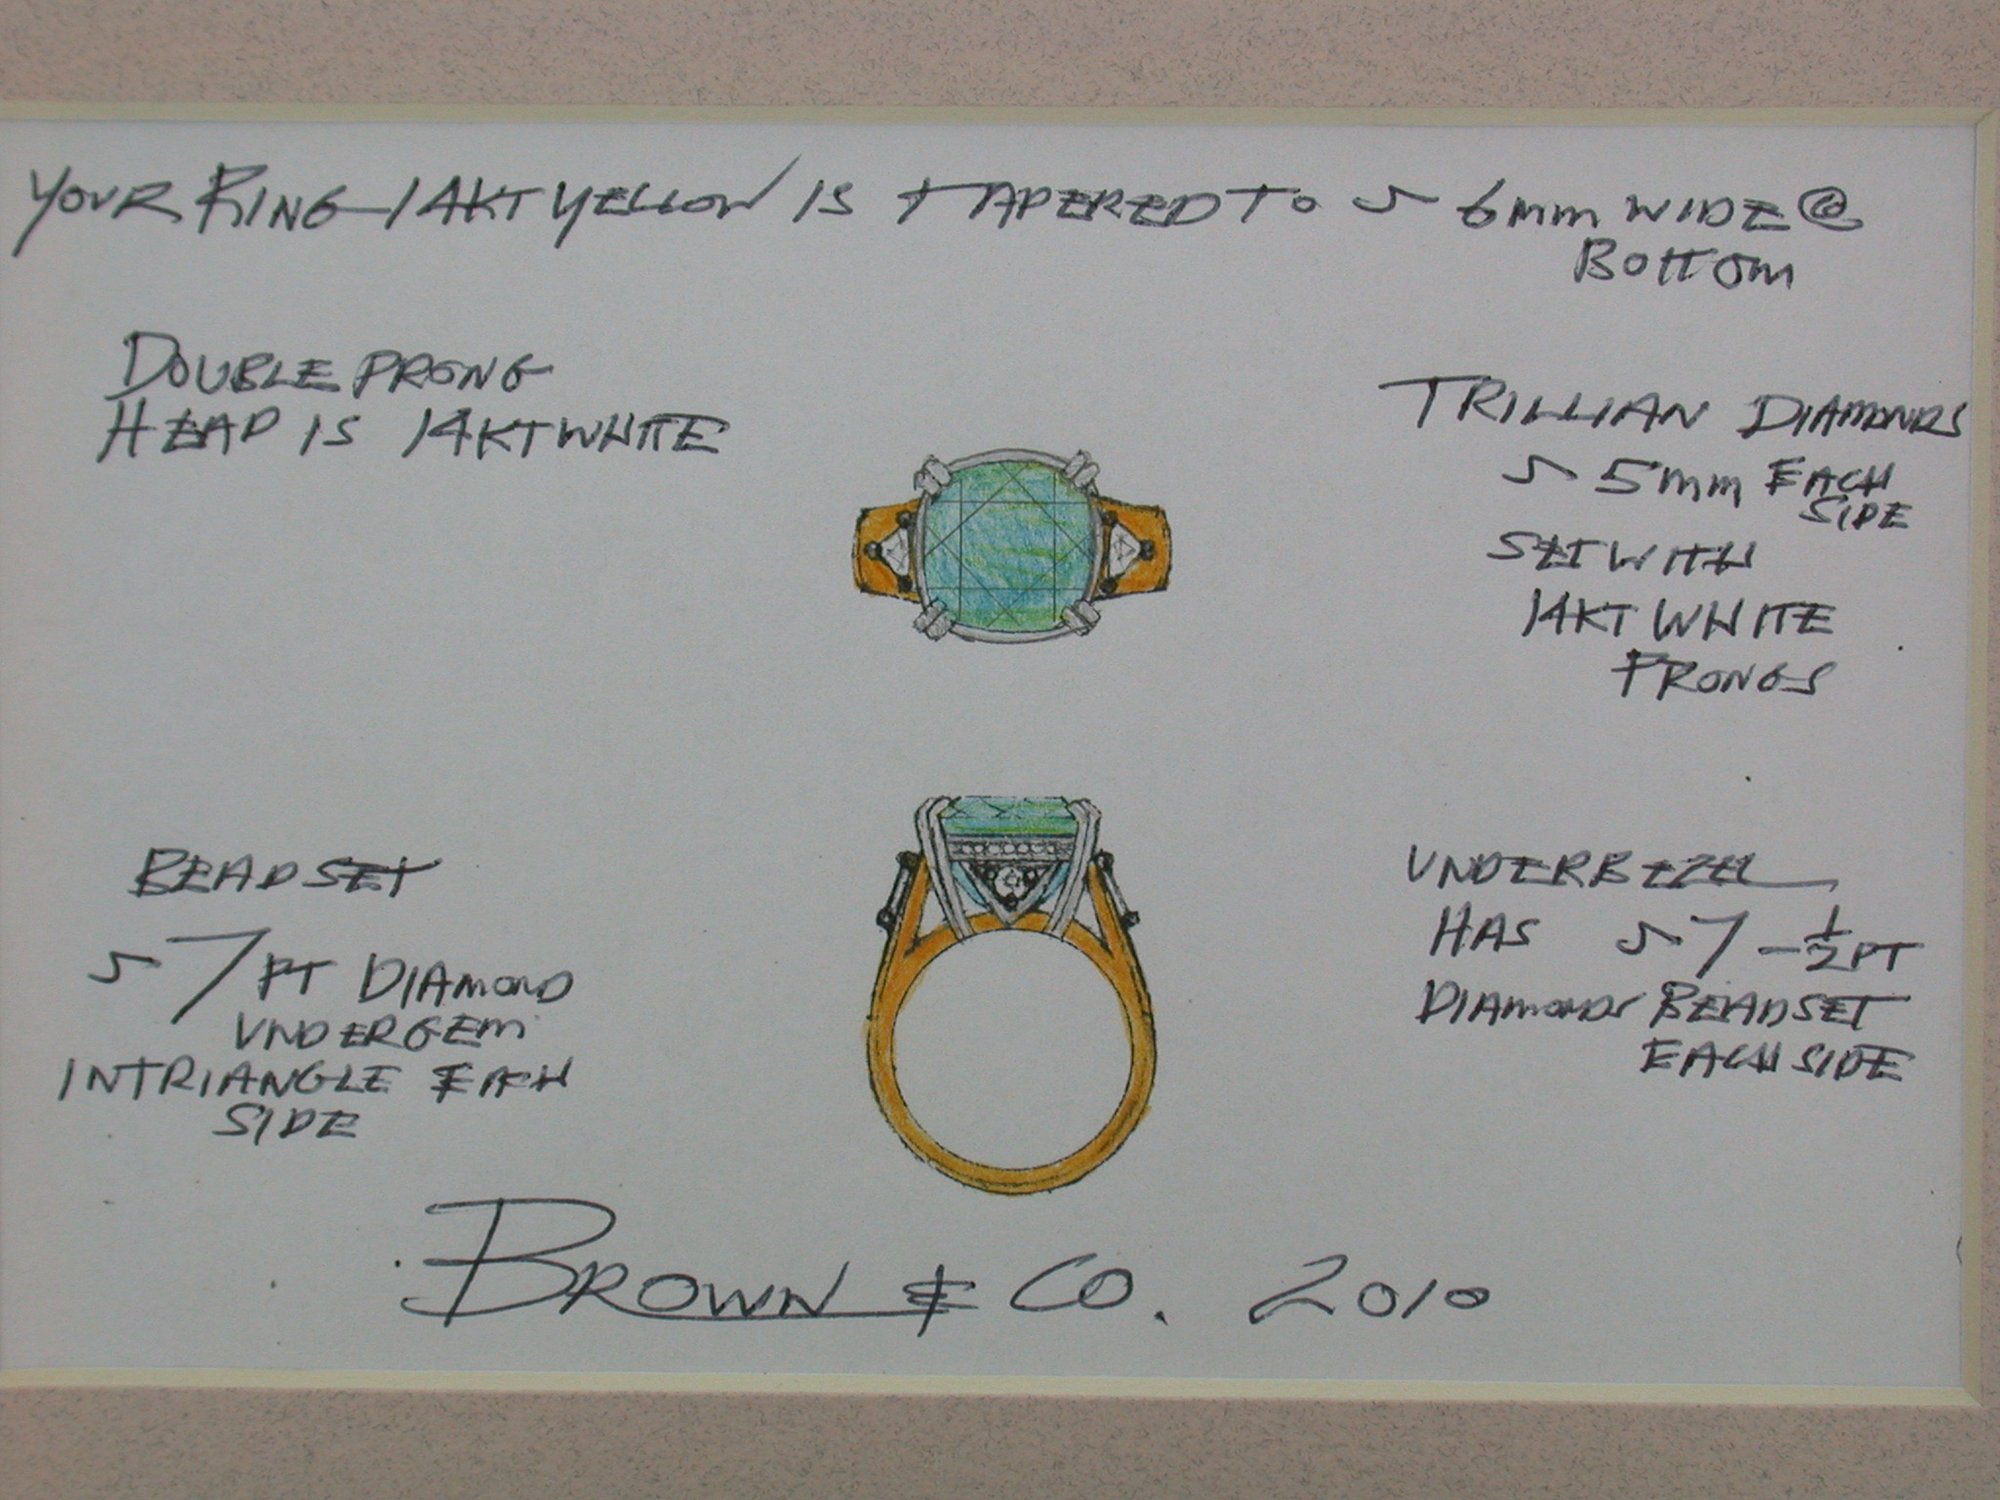 YOUR RING 14KT YELLOW IS TAPERED TO ~ 6mm WIDE @
BOTTOM
DOUBLE PRONG
HEAD IS 14KT WHITE
TRILLIAN DIAMONDS
~ 5mm EACH
SIDE
SET WITH
14KT WHITE
PRONGS
BEADSET
~ 7 PT DIAMOND
UNDERGEM
IN TRIANGLE EACH
SIDE
UNDERBEZEL
HAS ~ 7 - 1/2 PT
DIAMONDS BEADSET
EACH SIDE
BROWN & CO. 2010